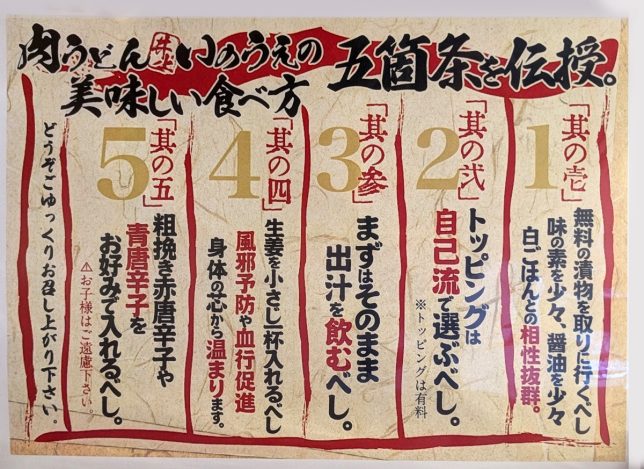 肉うどん井上いのうえの
美味しい食べ方
五箇条を伝授。
「其の壱」
1
無料の漬物を取りに行くべし
味の素を少々、醤油を少々
白ごはんとの相性抜群。
「其の弐」
2
トッピングは
自己流で選ぶべし。
※トッピングは有料
「其の参」
3
まずはそのまま
出汁を飲むべし。
「其の四」
4
生姜を小さじ一杯入れるべし
風邪予防や血行促進
身体の芯から温まります。
「其の五」
5
粗挽き赤唐辛子や
青唐辛子を
お好みで入れるべし。
⚠お子様はご遠慮下さい。
どうぞごゆっくりお召し上がり下さい。